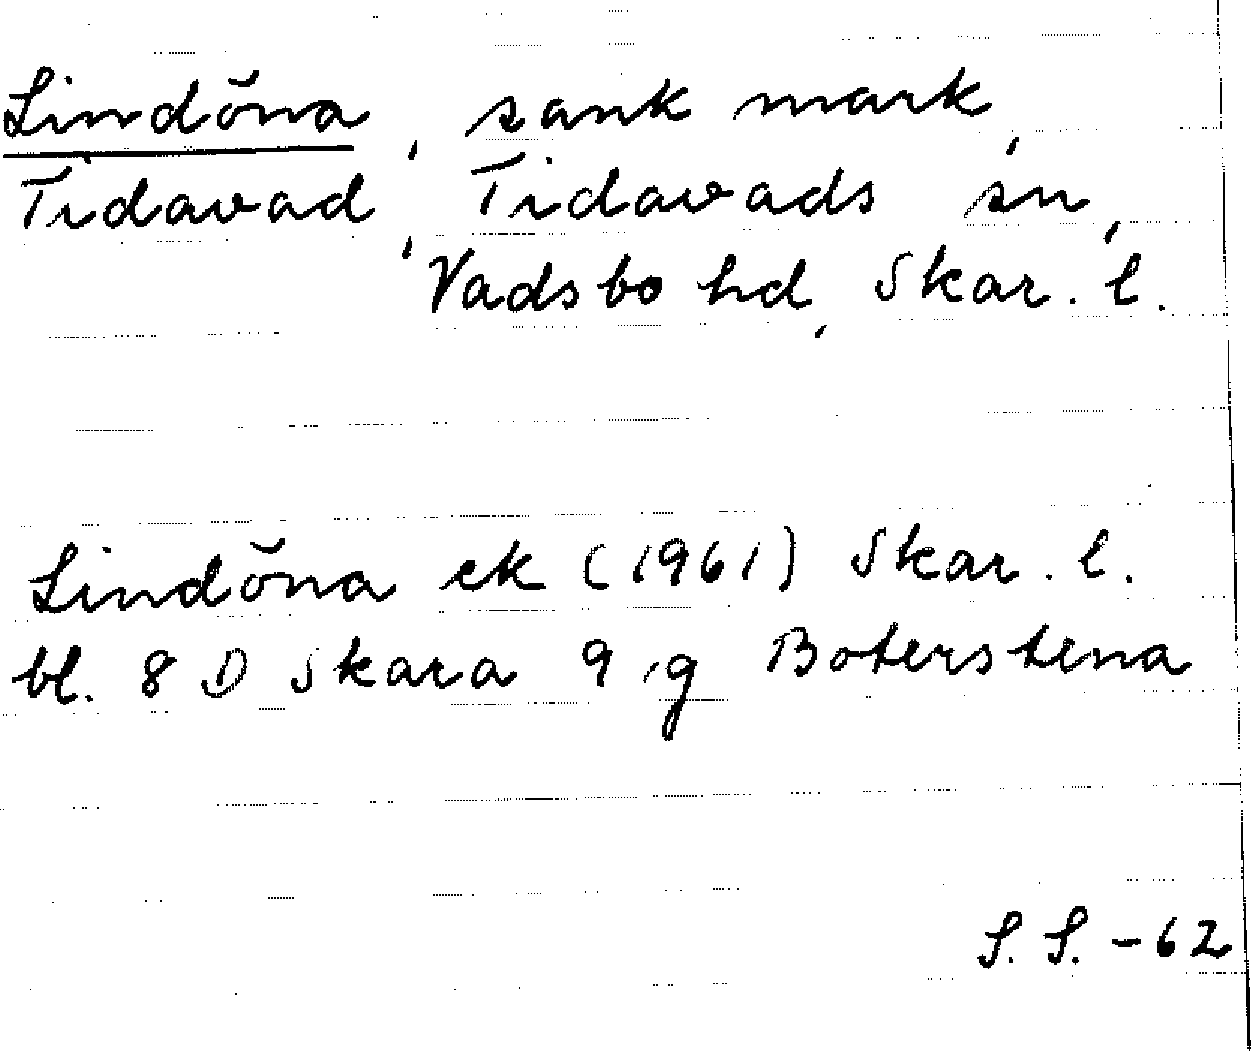 Lindöna, sank mark,
Tidavad, Tidavads sn,
Vadsbo hd, Skar. l.
Lindöna ek (1961) Skar. l.
bl. 8 D Skara 9 g Boterstena
S. S. -62